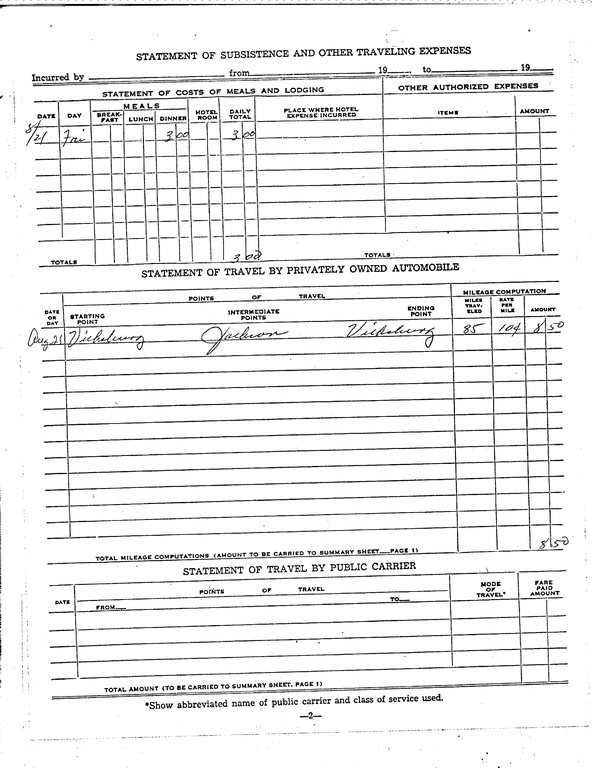 STATEMENT OF SUBSISTENCE AND OTHER TRAVELING EXPENSES
Incurred by from 19 , to 19
STATEMENT OF COSTS OF MEALS AND LODGING OTHER AUTHORIZED EXPENSES
DATE DAY MEALS HOTEL ROOM DAILY TOTAL PLACE WHERE HOTEL EXPENSE INCURRED ITEMS AMOUNT
BREAK-FAST LUNCH DINNER
8/21 Fri 3 00 3 00
TOTALS 3 00 TOTALS
STATEMENT OF TRAVEL BY PRIVATELY OWNED AUTOMOBILE
POINTS OF TRAVEL MILEAGE COMPUTATION
DATE OR DAY STARTING POINT INTERMEDIATE POINTS ENDING POINT MILES TRAV-ELED RATE PER MILE AMOUNT
Aug 21 Vicksburg Jackson Vicksburg 85 10¢ 8 50
TOTAL MILEAGE COMPUTATIONS (AMOUNT TO BE CARRIED TO SUMMARY SHEET—PAGE 1) 8 50
STATEMENT OF TRAVEL BY PUBLIC CARRIER
DATE POINTS OF TRAVEL MODE OF TRAVEL* FARE PAID AMOUNT
FROM— TO—
TOTAL AMOUNT (TO BE CARRIED TO SUMMARY SHEET, PAGE 1)
*Show abbreviated name of public carrier and class of service used.
—2—